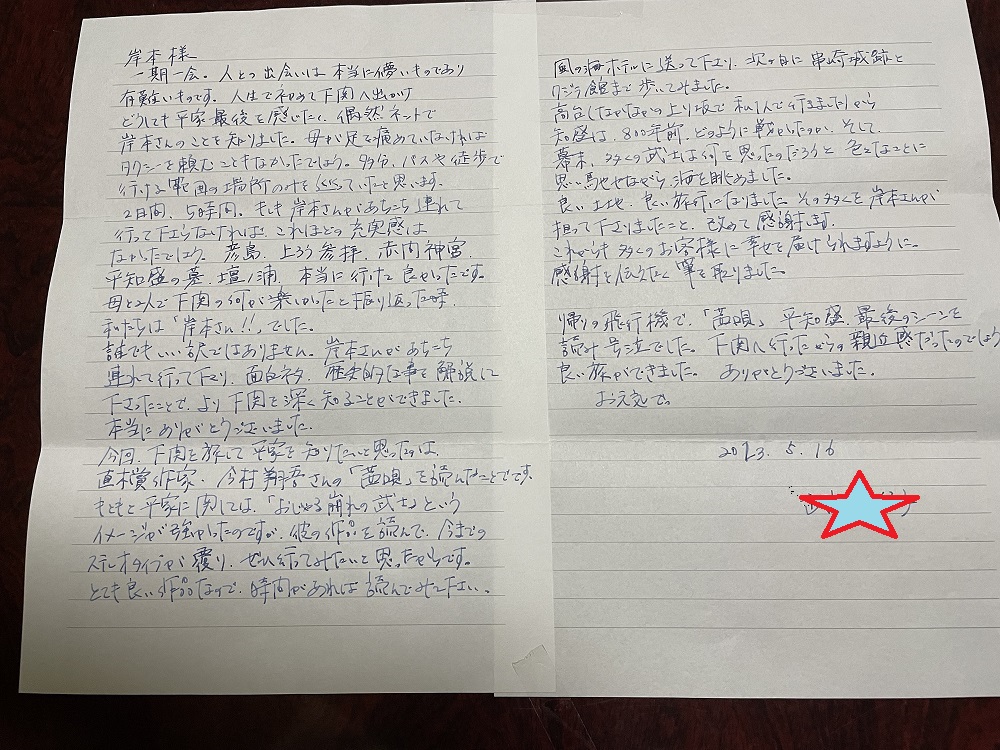 岸本様
一期一会。人との出会いは本当に儚いものであり
有難いものです。人生で初めて下関へ出かけ
どうしても平家最後を感じたく、偶然ネットで
岸本さんのことを知りました。母が足を痛めていなければ
タクシーを頼むこともなかったでしょう。多分、バスや徒歩で
行ける範囲の場所のみを巡っていたと思います。
2日間、5時間。もしも岸本さんがあちこち連れて
行って下さらなければ、これほどの充実感は
なかったでしょう。彦島、上ろう参拝、赤間神宮、
平知盛の墓、壇ノ浦、本当に行けて良かったです。
母と2人で下関の何が楽しかったと振り返った時、
私たちは「岸本さん!!」でした。
誰でもいい訳ではありません。岸本さんがあちこち
連れて行って下さり、面白ネタ、歴史的な事を解説して
下さったことで、より下関を深く知ることができました。
本当にありがとうございました。
今回、下関を旅して平家を知りたいと思ったのは、
直木賞作家、今村翔吾さんの「茜唄」を読んだことです。
もともと平家に関しては、「おじゃる崩れの武士」という
イメージが強かったのですが、彼の作品を読んで、今までの
ステレオタイプが覆り、ぜひ行ってみたいと思ったからです。
とても良い作品なので、時間があれば読んでみて下さい。
風の海ホテルに送って下さり、次の日に串崎城跡と
クジラ館まで歩いてみました。
高台でなかなかの上り坂で私1人で行きましたから
知盛は、800年前、どのように戦かったのか、そして、
幕末、多くの武士は何を思ったのだろうと色々なことに
思い馳せながら海を眺めました。
良い土地、良い旅行になりました。その多くを岸本さんが
担って下さりましたこと、改めて感謝します。
これからも多くのお客様に幸せを届けられますように。
感謝を伝えたく筆を取りました。
帰りの飛行機で、「茜唄」平知盛、最後のシーンを
読み号泣でした。下関へ行ったからの親近感だったのでしょう
良い旅ができました。ありがとうございました。
お元気で。
2023.5.16